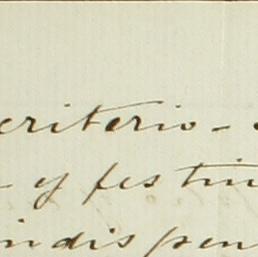 criterio -
- y festin
indispen